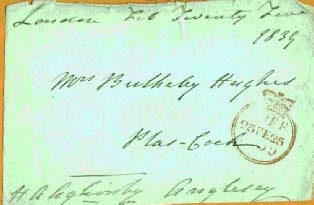 London Feb Twenty Five
1839
Mrs Bulkeley Hughes
Plas-Coch
Anglesey
25 FE 25